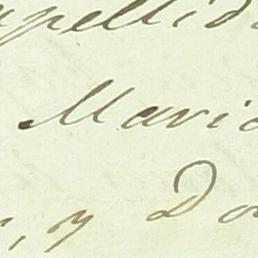 apellid
Maria
, y Do